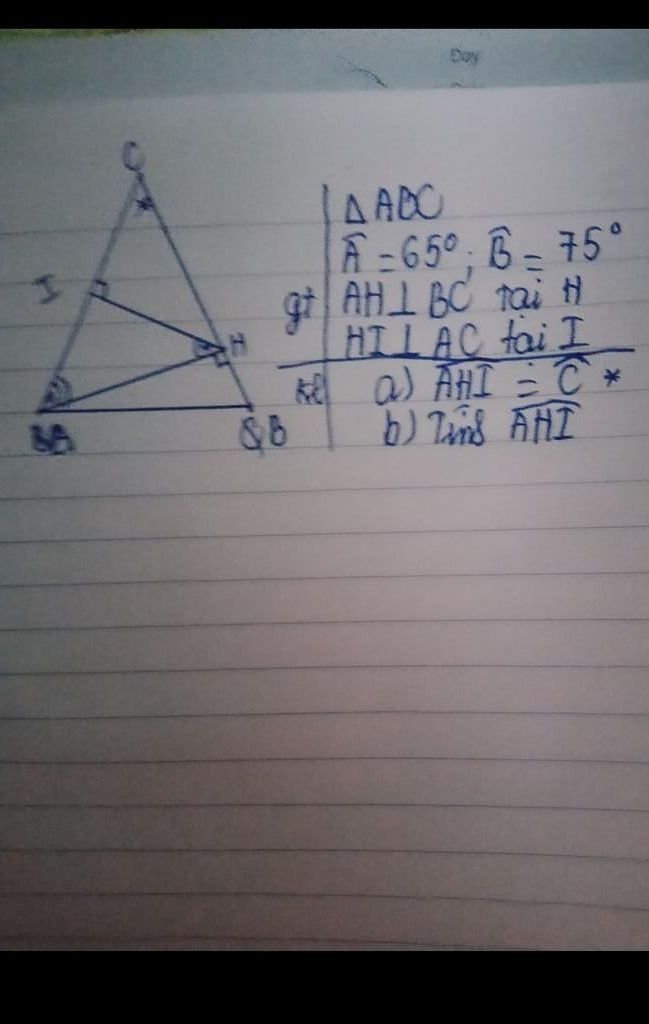 Day
C
I
H
A
B
Δ ABC
Â = 65°; B̂ = 75°
gt
AH ⊥ BC tại H
HI ⊥ AC tại I
KL
a) AHI = C *
b) Tính AHI